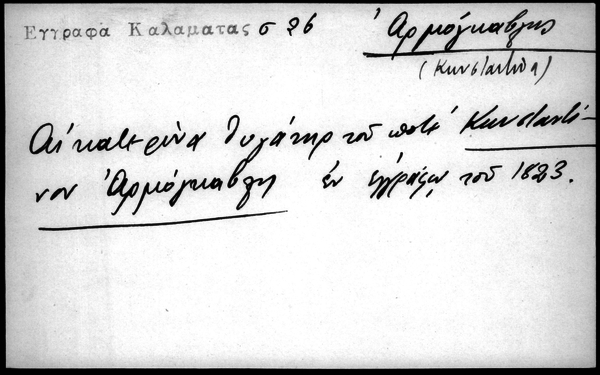 Εγγραφα Καλαματας σ 26
Ἀρμόγκαβλης
(Κωνσταντῖνος)
Αἰκατερῖνα θυγάτηρ τοῦ ποτὲ Κωνσταντί-
νου Ἀρμόγκαβλη ἐν ἐγγράφῳ τοῦ 1823.